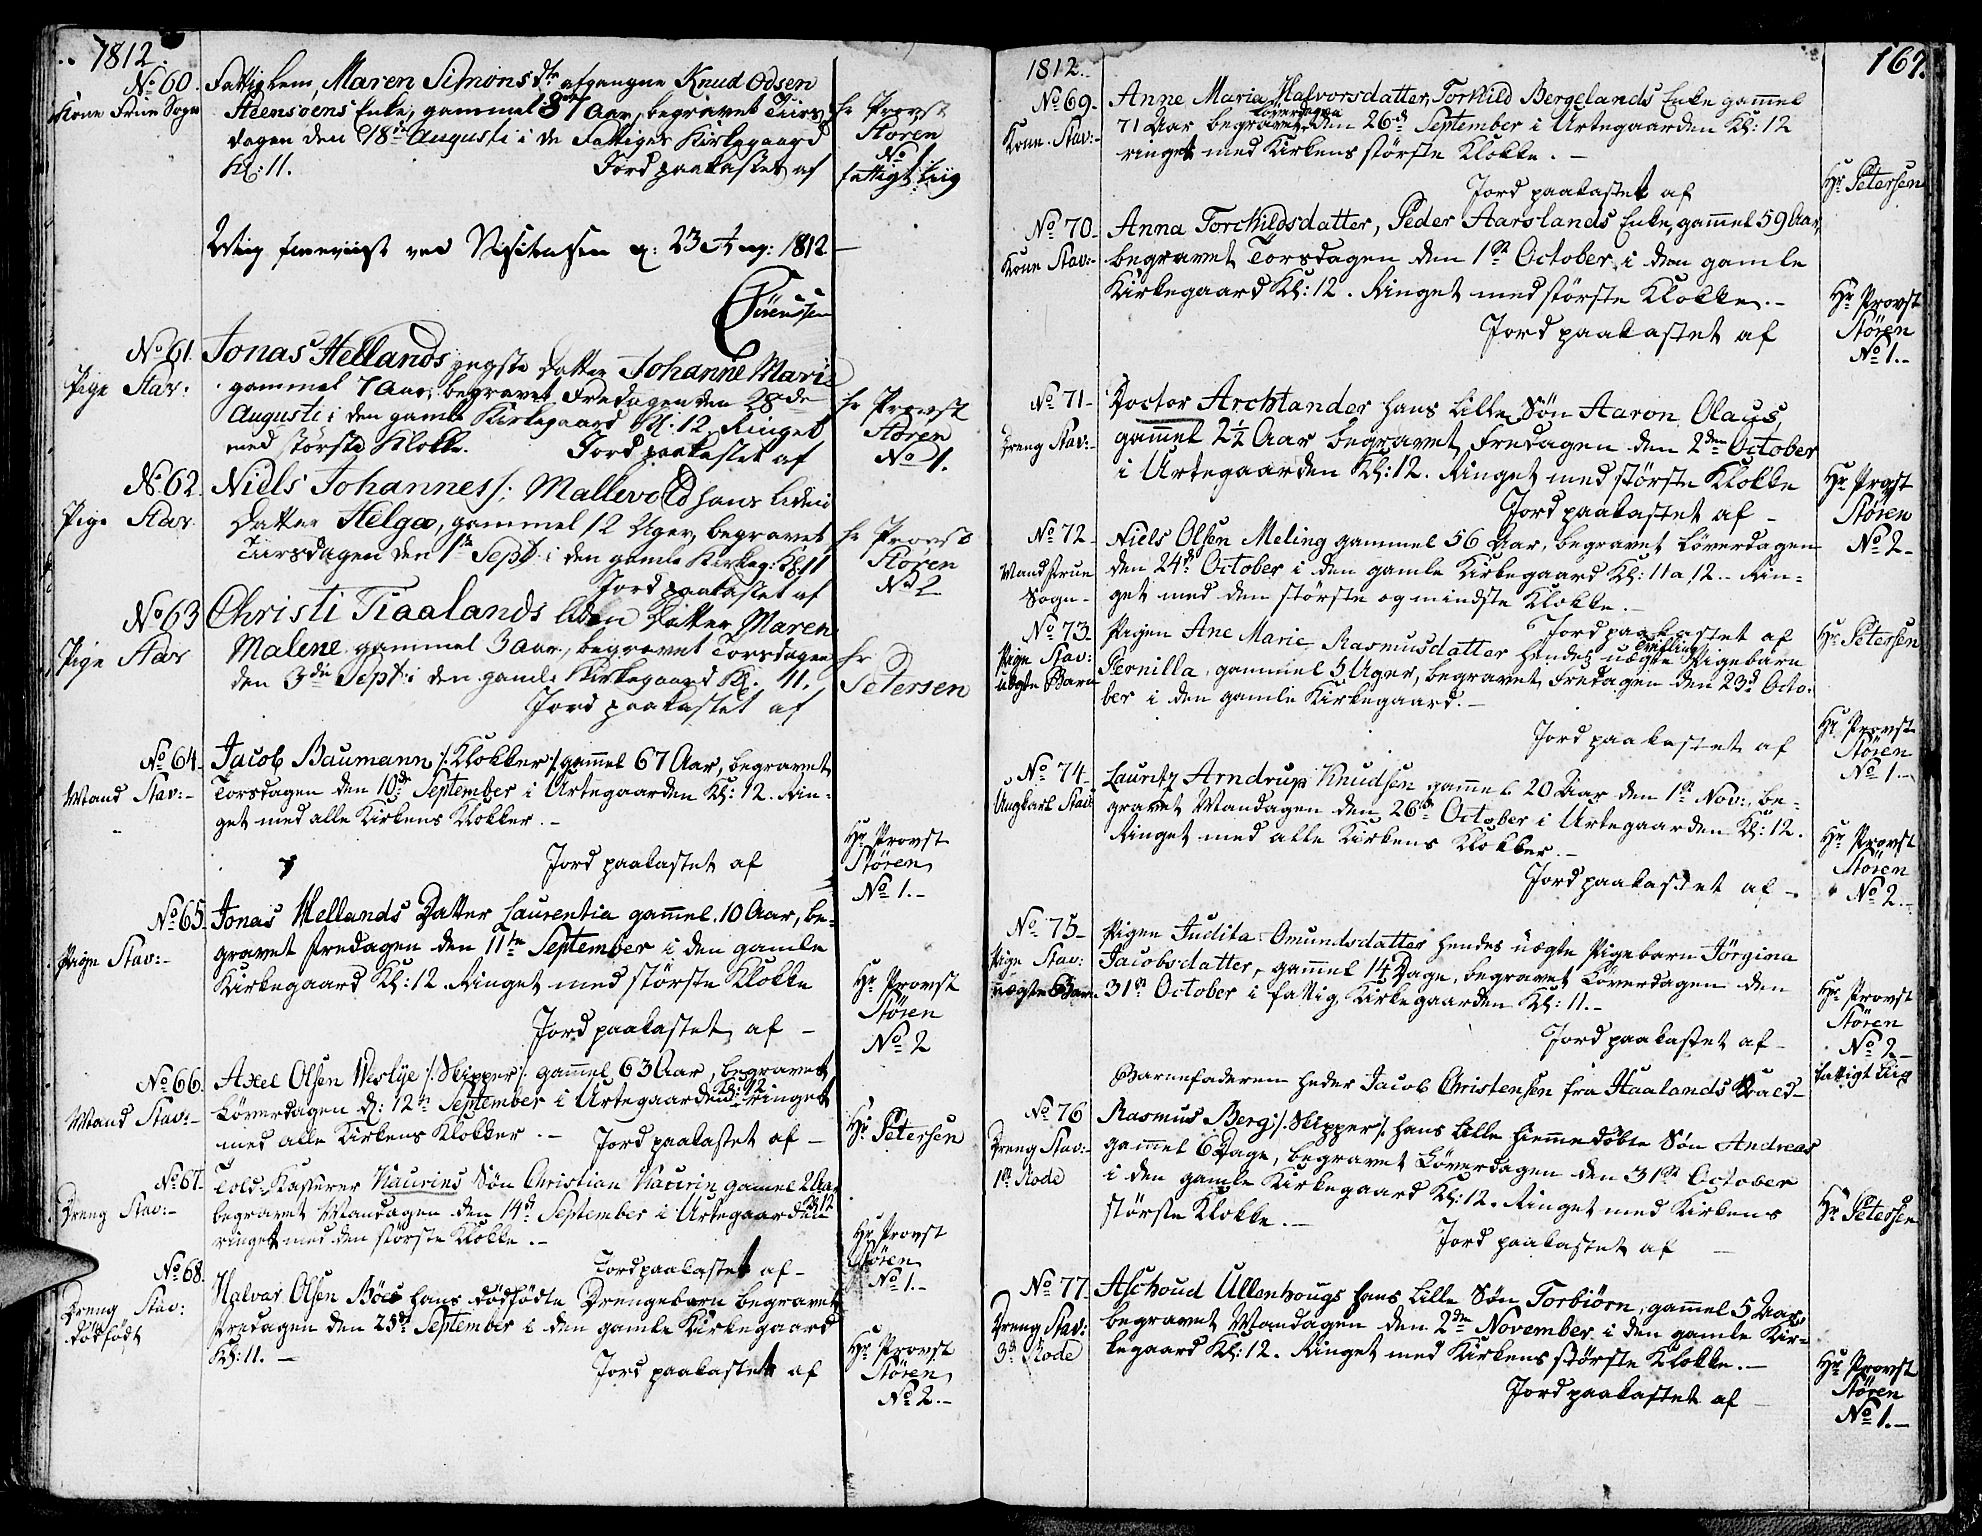 1812.
No 60.
Kone Frue Sogn
Fattiglem, Maren Simonsdtr afgangne Knud Odsen
Steensoens Enke, gammel 87 Aar, begravet Tiirs
dagen den 18de Augusti i de Fattiges Kirkegaard
Kl: 11. Jord paakastet af
Hr Provst
Støren
No 1
fattigt Liig
foreviist ved Visitatsen d: 23 Aug: 1812
Sörenssen
No 61.
Pige Stav:
Jonas Hellands yngste Datter Johanne Marie
gammel 7 Aar, begravet Fredagen den 28de
Augusti i den gamle Kirkegaard Kl: 12. Ringet
med største Klokke. Jord paakastet af
Hr Provst
Støren
No 1.
No 62.
Pige Stav.
Niels Johannes/: Mallevold hans liden
Datter Helga, gammel 12 Uger, begravet
Tiirsdagen den 1te Sept: i den gamle Kirkeg: Kl: 11
Jord paakastet af
Hr Provst
Støren
No 2
No 63
Pige Stav
Christi Tiaalands liden Datter Maren
Malene gammel 3 Aar, begravet Torsdagen
den 3die Sept: i den gamle Kirkegaard Kl. 11.
Jord paakastet af
Hr
Petersen
No 64.
Mand Stav:-
Jacob Baumann /: Klokker :/ gammel 67 Aar, begravet
Torsdagen den 10de September i Urtegaarden Kl: 12. Rin-
get med alle Kirkens Klokker.-
Jord paakastet af
Hr Provst
Støren
No 1.-
No 65.
Pige Stav:-
Jonas Hellands Datter Laurentia gammel 10 Aar, be-
gravet Fredagen den 11te September i den gamle
Kirkegaard Kl: 12. Ringet med største Klokke
Jord paakastet af -
Hr Provst
Støren
No 2
No 66.
Mand Stav:-
Axel Olsen Westye /: Skipper :/ gammel 63 Aar, begravet
Løverdagen d: 12te September i Urtegaarden Kl: 12 ringet
med alle Kirkens Klokker.- Jord paakastet af -
Hr Petersen
No 67.
Dreng Stav:-
Told-Kasserer Naurins Søn Christian Naurin gammel 2 Aar
begravet Mandagen den 14de September i Urtegaarden Kl 12
ringet med den største Klokke.-
Jord paakastet af -
Hr Provst
Støren
No 1.-
No 68.
Dreng Stav:
dødfødt
Halvar Olsen Böes hans dødfødte Drengebarn begravet
Fredagen den 25de September i den gamle Kirkegaard
Kl: 11.- Jord paakastet af
Hr Provst
Støren
No 2.-
1812.
167.
No 69.
Kone Stav:-
Anne Maria Halvorsdatter, Torkild Bergelands Enke gammel
71 Aar begravet Løverdagen den 26de September i Urtegaarden Kl: 12
ringet med Kirkens største Klokke.-
Jord paakastet af
Hr Petersen
No 70.
Kone Stav:-
Anna Torchildsdatter, Peder Aarslands Enke, gammel 59 Aar,
begravet Torsdagen den 1ste October i den gamle
Kirkegaard Kl: 12. Ringet med største Klokke.-
Jord paakastet af
Hr Provst
Støren
No 1.-
No 71-
Dreng Stav:-
Doctor Archtander hans lille Søn Aaron Olaus,
gammel 2½ Aar begravet Fredagen den 2den October
i Urtegaarden Kl: 12. Ringet med største Klokke
Jord paakastet af -
Hr Provst
Støren
No 2-
No 72-
Mand Frue
Sogn-
Niels Olsen Meling gammel 56 Aar, begravet Løverdagen
den 24de October i den gamle Kirkegaard Kl: 11 a 12.- Rin-
get med den største og mindste Klokke.-
Jord paakastet af
Hr Petersen
No 73.
Pige Stav:
uægte Barn
Pigen Ane Marie Rasmusdatter hendes uægte Pigebarn
Pernilla, gammel 5 Uger, begravet Fredagen den 23de Octo-
ber i den gamle Kirkegaard.-
Jord paakastet af
Hr Provst
Støren
No 1.-
No 74-
Ungkarl Stav
Lauritz Arndrup Knudsen gammel 20 Aar den 1ste Nov:, be-
gravet Mandagen den 26de October i Urtegaarden Kl: 12.
Ringet med alle Kirkens Klokker.-
Jord paakastet af -
Hr Provst
Støren
No 2.-
No 75-
Pige Stav:
uægte Barn.
Pigen Judita Omundsdatter hendes uægte Pigebarn Jörgina
Jacobsdatter, gammel 14 Dage, begravet Løverdagen den
31te October i fattig Kirkegaarden Kl: 11.-
Jord paakastet af -
Hr Provst
Støren
No 2-
fattigt Liig
Barnefaderen heder Jacob Christensen fra Haalands Kald-
No 76
Dreng Stav:
1ste Rode
Rasmus Berg /: Skipper :/ hans lille hiemmedøbte Søn Andreas
gammel 6 Dage, begravet Løverdagen den 31te October
i den gamle Kirkegaard Kl: 12. Ringet med Kirkens
største Klokke.-
Jord paakastet af -
Hr Petersen
No 77.
Dreng Stav:
3de Rode
Aschoud Ullenhougs hans lille Søn Torbiörn, gammel 5 Aar,
begravet Mandagen den 2den November i den gamle Kir-
kegaard Kl: 12. Ringet med Kirkens største Klokke.-
Jord paakastet af -
Hr Provst
Støren
No 1.-